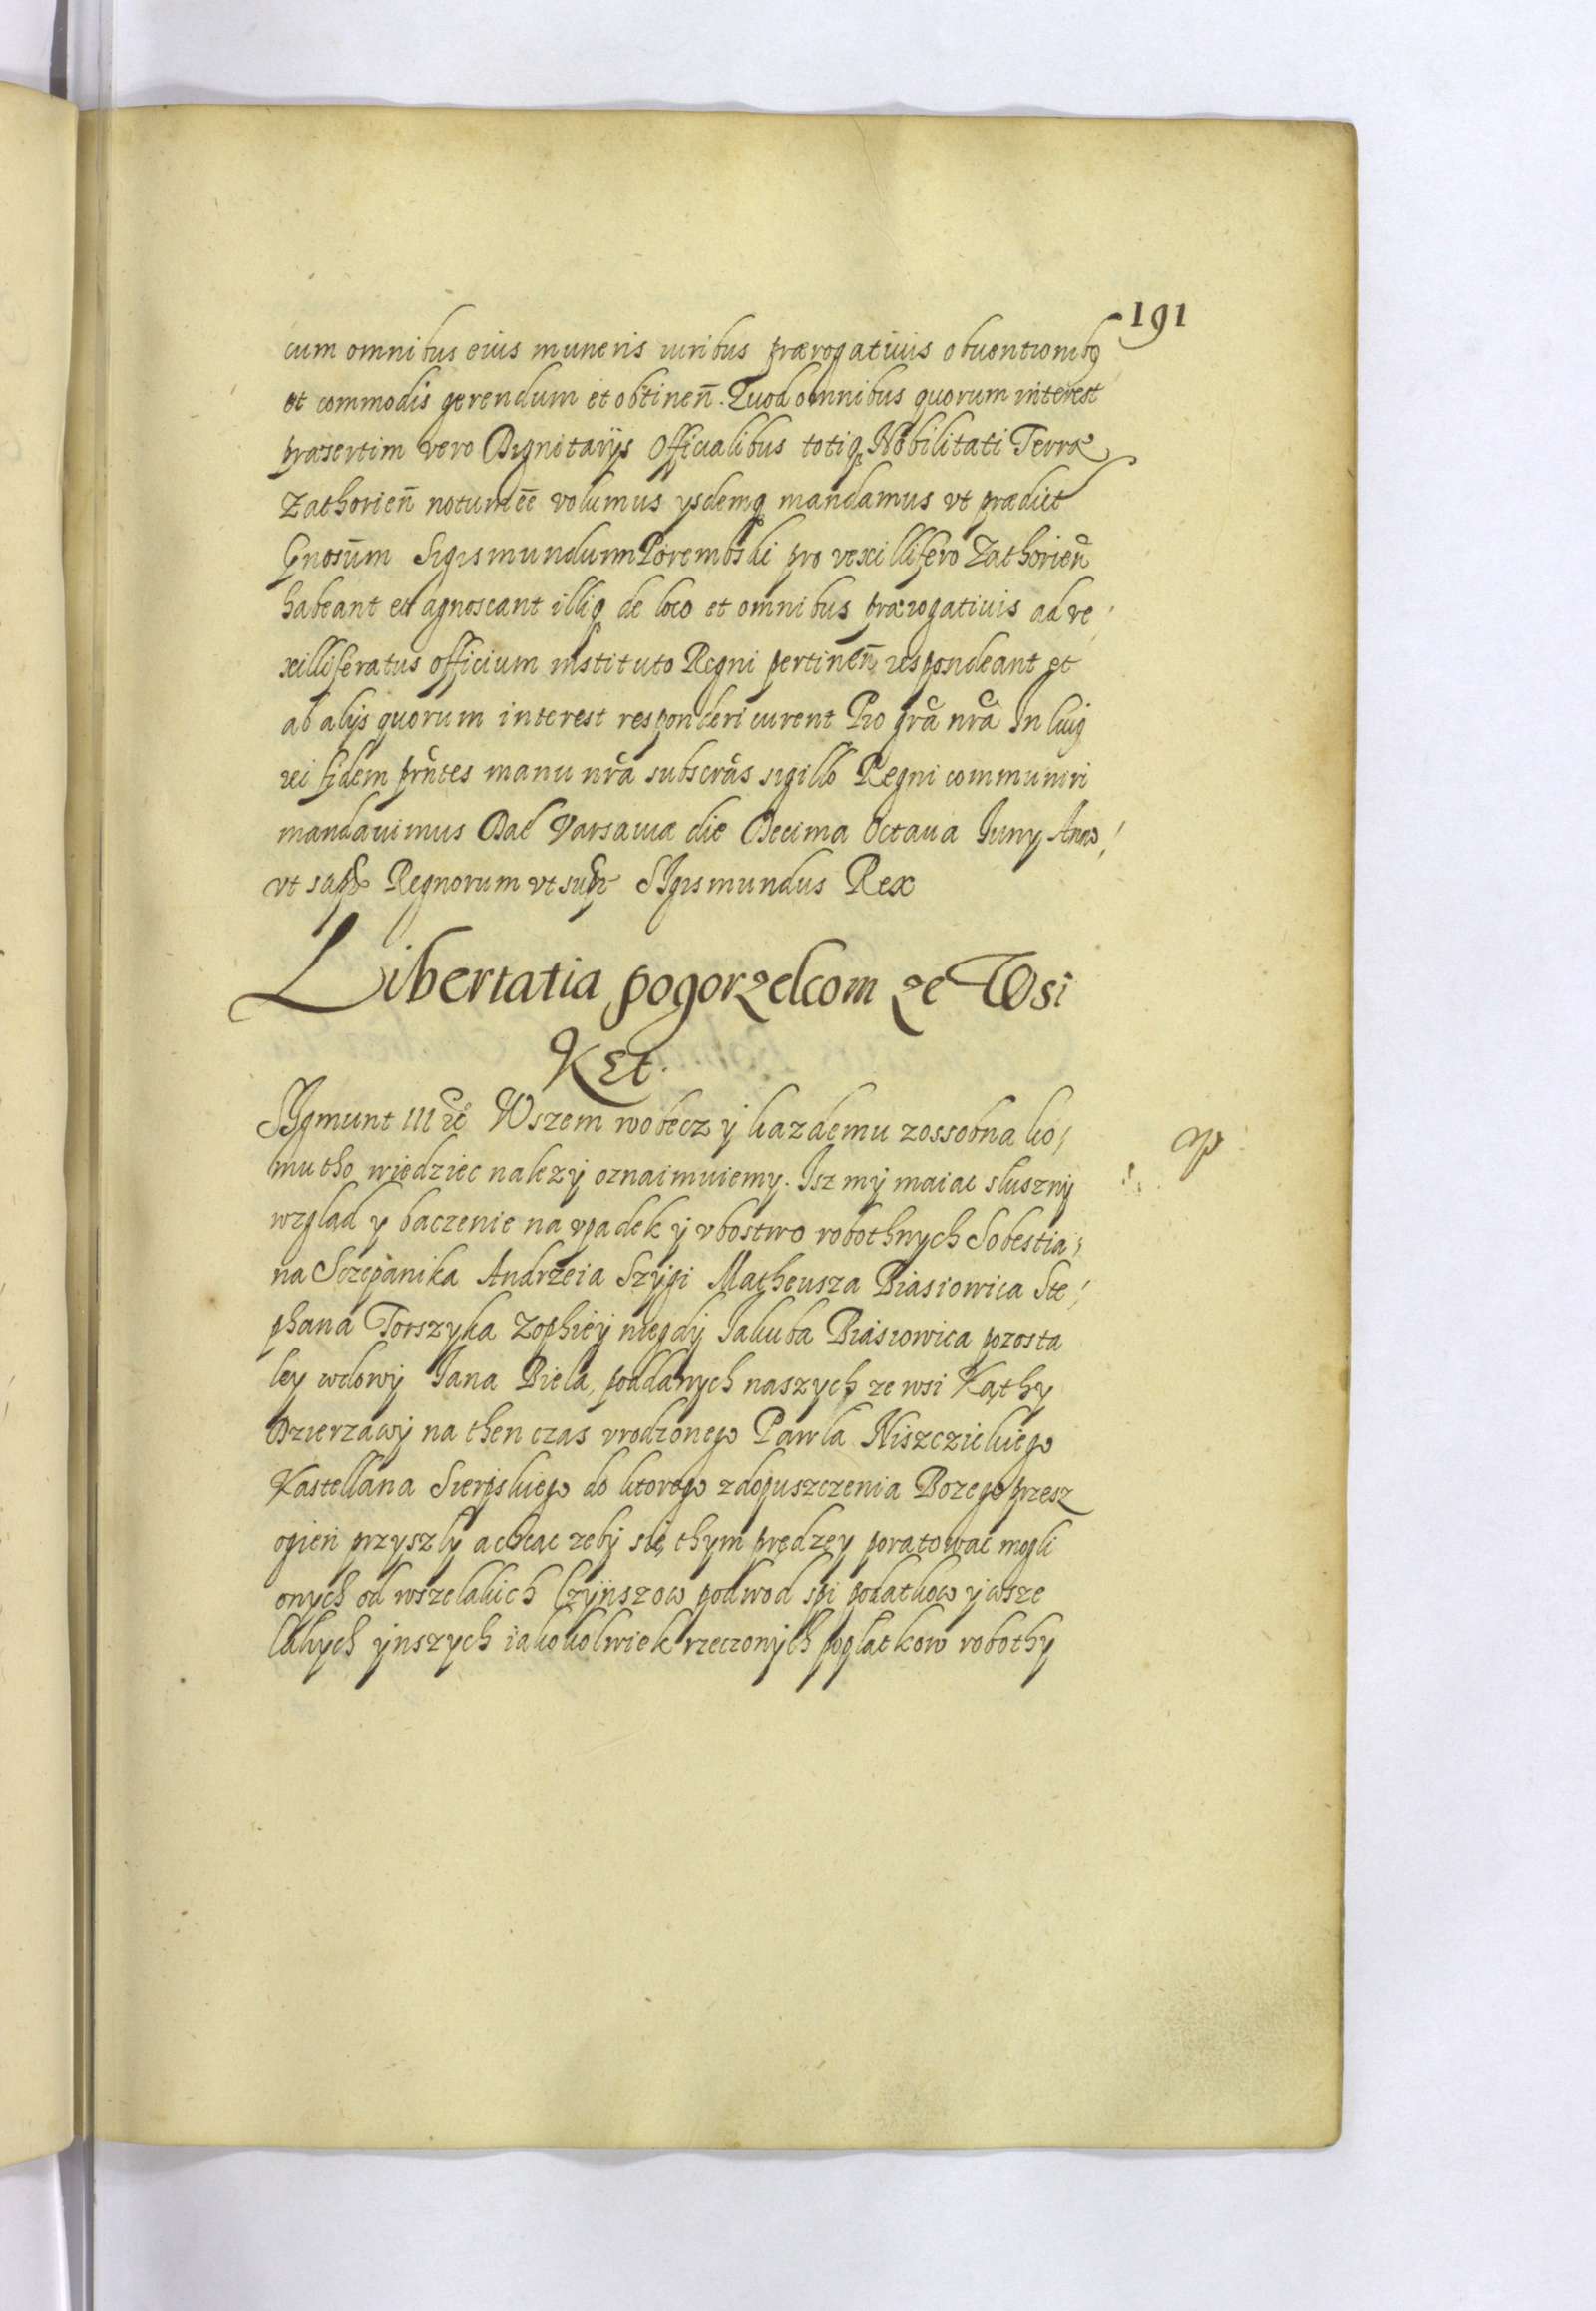 191
cum omnibus eius muneris iuribus prærogatiuis obuentionibꝫ
et commodis gerendum et obtinen̄. Quod omnibus quorum interest
præsertim vero Dignitarÿs Officialibus totiqꝫ Nobilitati Terræ
Zathorien̄ notum ēē volumus ysdemqꝫ mandamus vt prædict
Gnosūm Sigismundum Porembski pro vexillifero Zathorien̄
habeant et agnoscant illiqꝫ de loco et omnibus prærogatiuis ad ve,
xilliferatus officium instituto Regni pertinen̄, respondeant et
ab alÿs quorum interest responderi curent Pro gr̃a nr̃a In cuiꝫ
rei fidem prn̄tes manu nr̃a subscr̃as sigillo Regni communiri
mandauimus Dat Varsauiæ die Decima Octaua Iuny Anno,
vt sup̃ Regnorum vt sup̃ SIgismundus Rex
Libertatia pogorzelcom ze Wsi
KEt.
SYgmunt III etc̃ Wszem wobecz ÿ kazdemu zossobna ko,
mu tho wiedziec nalezÿ oznaimuiemy. Isz mÿ maiac slusznÿ
wzglad y baczenie na vpadek ÿ vbostwo robothnych Sobestia,
na Sczepanika Andrzeia Szÿgi Matheusza Biasiowica Ste,
phana Torszyka Zophieÿ niegdÿ Jakuba Biasiowica pozosta
ley wdowÿ Jana Biela, poddanych naszych ze wsi Kąthy
Dzierzawÿ na then czas vrodzonego Pawla Niszczickiego
Kastellana Sierpskiego do ktorego z dopuszczenia Bozego przesz
ogien przyszly a chcac zebÿ sie, thym prędzey poratowac mogli
onych od wszelakich Czÿnszow podwod spi podatkow ÿ wsze
lakych ÿnszych iakokolwiek rzeczonÿch poglatkow robothy